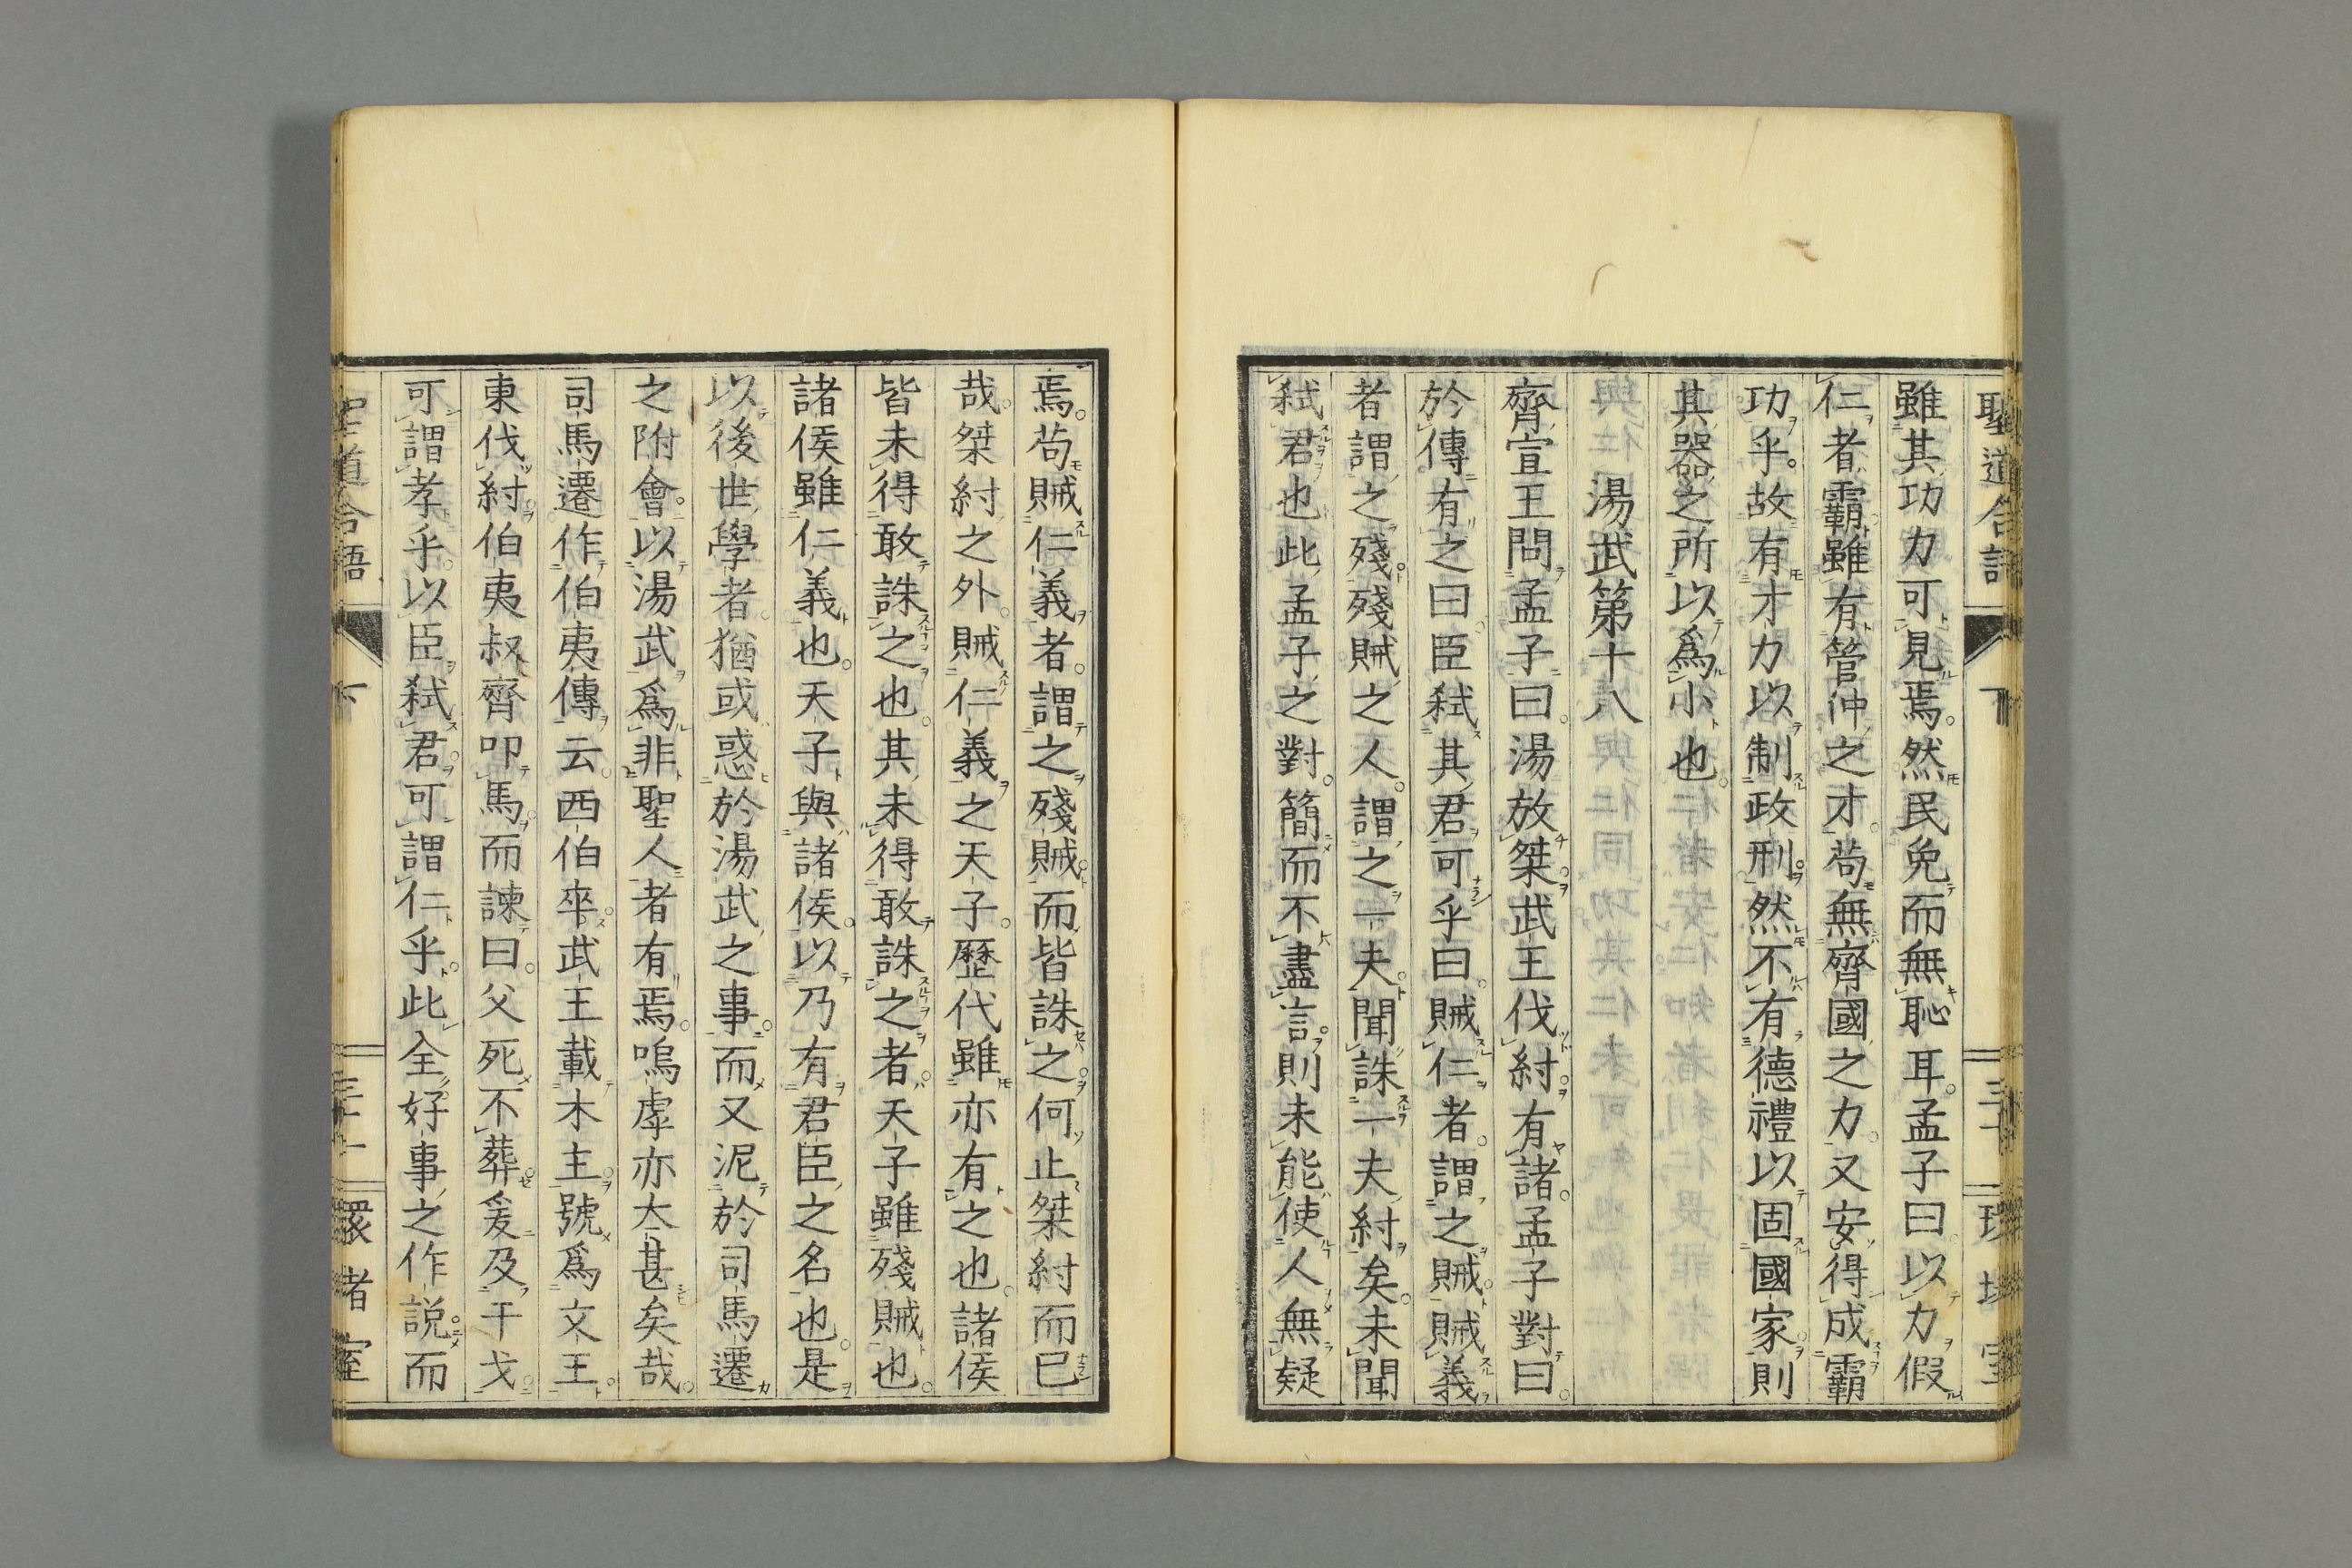 聖道合語 下
雖其功力可見焉。然民免而無恥耳。孟子曰以力假
仁者霸雖有管仲之才。苟無齊國之力。又安得成霸
功乎。故有才力以制政刑然不有德禮以固國家則
其器之所以爲小也。
湯武第十八
齊宣王問孟子曰。湯放桀武王伐紂有諸。孟子對曰。
於傳有之曰。臣弒其君可乎曰。賊仁者。謂之賊賊義
者謂之殘殘賊之人。謂之一夫聞誅一夫紂矣。未聞
弒君也此孟子之對。簡而不盡言。則未能使人無疑
焉。苟賊仁義者。謂之殘賊而皆誅之何止桀紂而已
哉。桀紂之外。賊仁義之天子。歷代雖亦有之也。諸侯
皆未得敢誅之也。其未得敢誅之者。天子雖殘賊也。
諸侯雖仁義也。天子與諸侯。以乃有君臣之名也。是
以後世學者。猶或惑於湯武之事。而又泥於司馬遷
之附會。以湯武爲非聖人者有焉。嗚虖亦太甚矣哉。
司馬遷作伯夷傳云。西伯卒。武王載木主。號爲文王。
東伐紂。伯夷叔齊叩馬。而諫曰。父死不葬。爰及干戈。
可謂孝乎。以臣弒君。可謂仁乎。此全好事之作説。而
聖道合語 下
環堵室